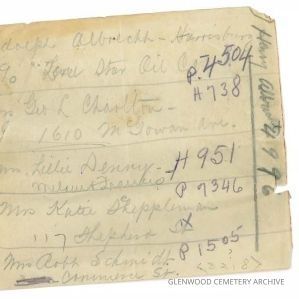 dolph Albrecht - Harrisburg
c/o "Lone Star Oil Co P. 4504
H 738
Geo L Charlton -
1610 McGowan ave.
Mrs. Lillie Denny - H 951
P 7346
Mrs Katie Sheppleman
117 Shepherd St
Mrs Robt Schmidt P 1505
Commerce St.
GLENWOOD CEMETERY ARCHIVE